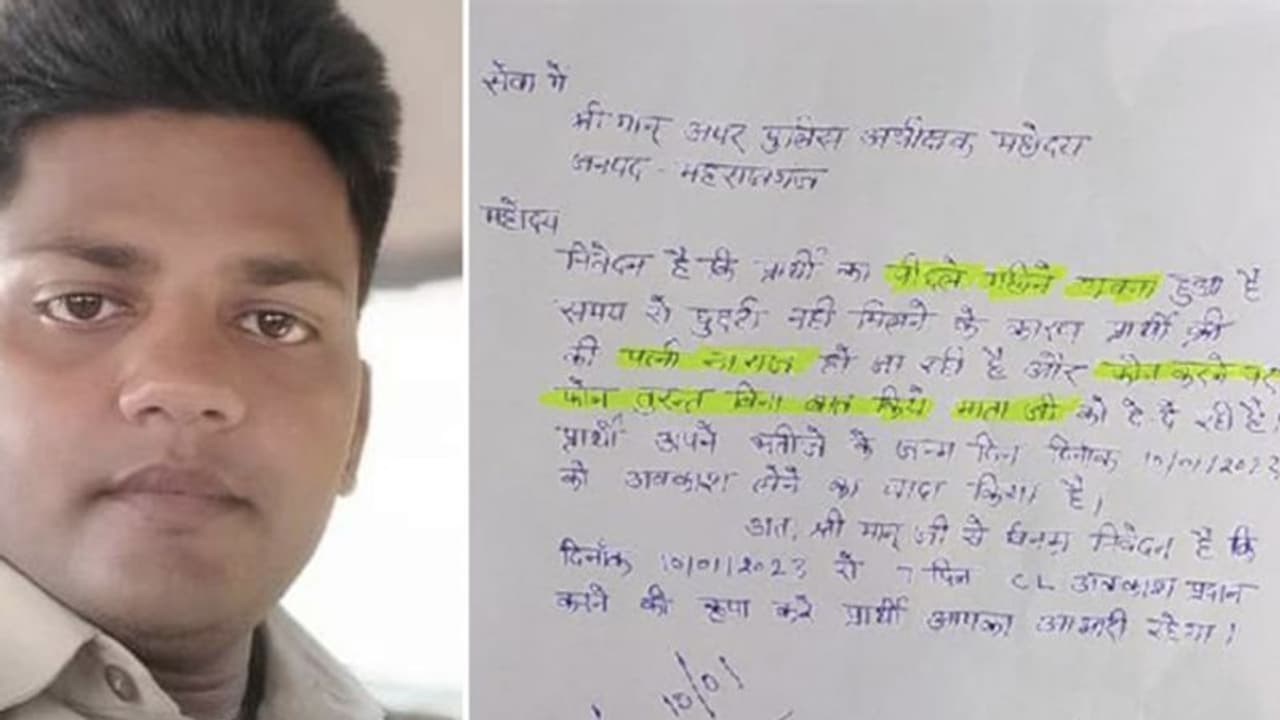 सेवा में
श्री मान् अपर पुलिस अधीक्षक महोदय
जनपद - महराजगंज
महोदय
निवेदन है कि प्रार्थी का पीछले महिने गवना हुआ है
समय से छुट्टी नही मिलने के कारण प्रार्थी की
की पत्नी नाराज हो जा रही है और फोन करने पर
फोन तुरन्त बिना बात किये माता जी को दे दे रही है।
प्रार्थी अपने भतीजे के जन्म दिन दिनांक 10/01/2023
को अवकाश लेने का वादा किया है।
अत, श्री मान् जी से विनम्र निवेदन है कि
दिनाँक 10/01/2023 से 7 दिन CL अवकाश प्रदान
करने की कृपा करे प्रार्थी आपका आभारी रहेगा।
10/01